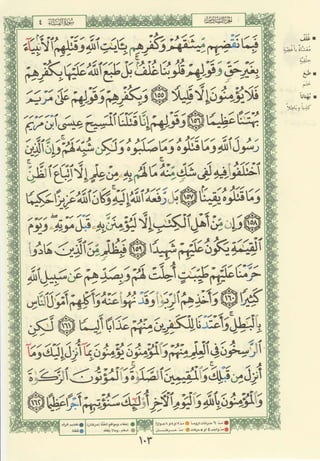 سُورَةُ النِّسَاءِ ٤
فَبِمَا نَقْضِهِم مِّيثَٰقَهُمْ وَكُفْرِهِم بِـَٔايَٰتِ ٱللَّهِ وَقَتْلِهِمُ ٱلْأَنۢبِيَآءَ
بِغَيْرِ حَقٍّ وَقَوْلِهِمْ قُلُوبُنَا غُلْفٌۢ بَلْ طَبَعَ ٱللَّهُ عَلَيْهَا بِكُفْرِهِمْ
فَلَا يُؤْمِنُونَ إِلَّا قَلِيلًا ١٥٥ وَبِكُفْرِهِمْ وَقَوْلِهِمْ عَلَىٰ مَرْيَمَ
بُهْتَٰنًا عَظِيمًا ١٥٦ وَقَوْلِهِمْ إِنَّا قَتَلْنَا ٱلْمَسِيحَ عِيسَى ٱبْنَ مَرْيَمَ
رَسُولَ ٱللَّهِ وَمَا قَتَلُوهُ وَمَا صَلَبُوهُ وَلَٰكِن شُبِّهَ لَهُمْ وَإِنَّ ٱلَّذِينَ
ٱخْتَلَفُوا۟ فِيهِ لَفِى شَكٍّ مِّنْهُ مَا لَهُم بِهِۦ مِنْ عِلْمٍ إِلَّا ٱتِّبَاعَ ٱلظَّنِّ
وَمَا قَتَلُوهُ يَقِينًۢا ١٥٧ بَل رَّفَعَهُ ٱللَّهُ إِلَيْهِ وَكَانَ ٱللَّهُ عَزِيزًا حَكِيمًا
١٥٨ وَإِن مِّنْ أَهْلِ ٱلْكِتَٰبِ إِلَّا لَيُؤْمِنَنَّ بِهِۦ قَبْلَ مَوْتِهِۦ وَيَوْمَ
ٱلْقِيَٰمَةِ يَكُونُ عَلَيْهِمْ شَهِيدًا ١٥٩ فَبِظُلْمٍ مِّنَ ٱلَّذِينَ هَادُوا۟
حَرَّمْنَا عَلَيْهِمْ طَيِّبَٰتٍ أُحِلَّتْ لَهُمْ وَبِصَدِّهِمْ عَن سَبِيلِ ٱللَّهِ
كَثِيرًا ١٦٠ وَأَخْذِهِمُ ٱلرِّبَوٰا۟ وَقَدْ نُهُوا۟ عَنْهُ وَأَكْلِهِمْ أَمْوَٰلَ ٱلنَّاسِ
بِٱلْبَٰطِلِ وَأَعْتَدْنَا لِلْكَٰفِرِينَ مِنْهُمْ عَذَابًا أَلِيمًا ١٦١ لَّٰكِنِ
ٱلرَّٰسِخُونَ فِى ٱلْعِلْمِ مِنْهُمْ وَٱلْمُؤْمِنُونَ يُؤْمِنُونَ بِمَآ أُنزِلَ إِلَيْكَ وَمَآ
أُنزِلَ مِن قَبْلِكَ وَٱلْمُقِيمِينَ ٱلصَّلَوٰةَ وَٱلْمُؤْتُونَ ٱلزَّكَوٰةَ
وَٱلْمُؤْمِنُونَ بِٱللَّهِ وَٱلْيَوْمِ ٱلْءَاخِرِ أُو۟لَٰٓئِكَ سَنُؤْتِيهِمْ أَجْرًا عَظِيمًا ١٦٢
١٠٣